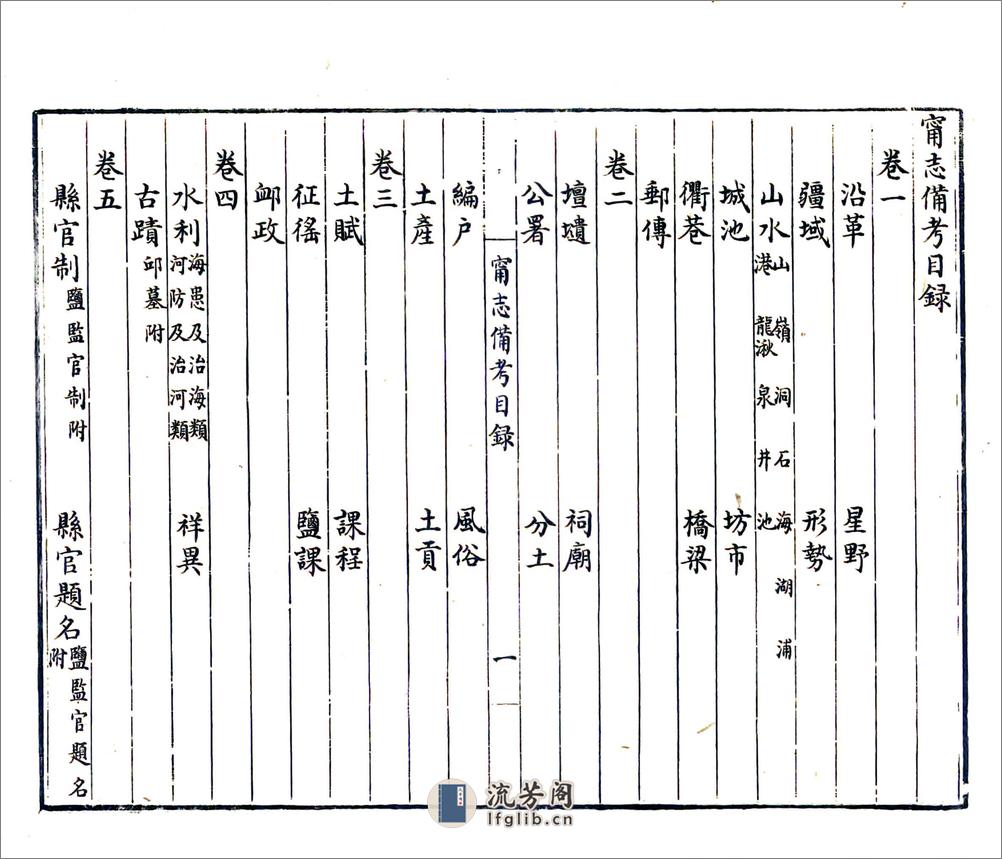 甯志備考目録
卷一
沿革 星野
疆域 形勢
山水 山 嶺 洞 石 海 湖 浦 港 龍湫 泉 井 池
城池 坊市
衢巷 橋梁
郵傳
卷二
壇壝 祠廟
公署 分土
甯志備考目録 一
編户 風俗
土產 土貢
卷三
土賦 課程
征徭 鹽課
卹政
卷四
水利 海患及治海類 河防及治河類 祥異
古蹟 邱墓附
卷五
縣官制 鹽監官制附 縣官題名 鹽監官題名附
流芳阁
lfglib.cn